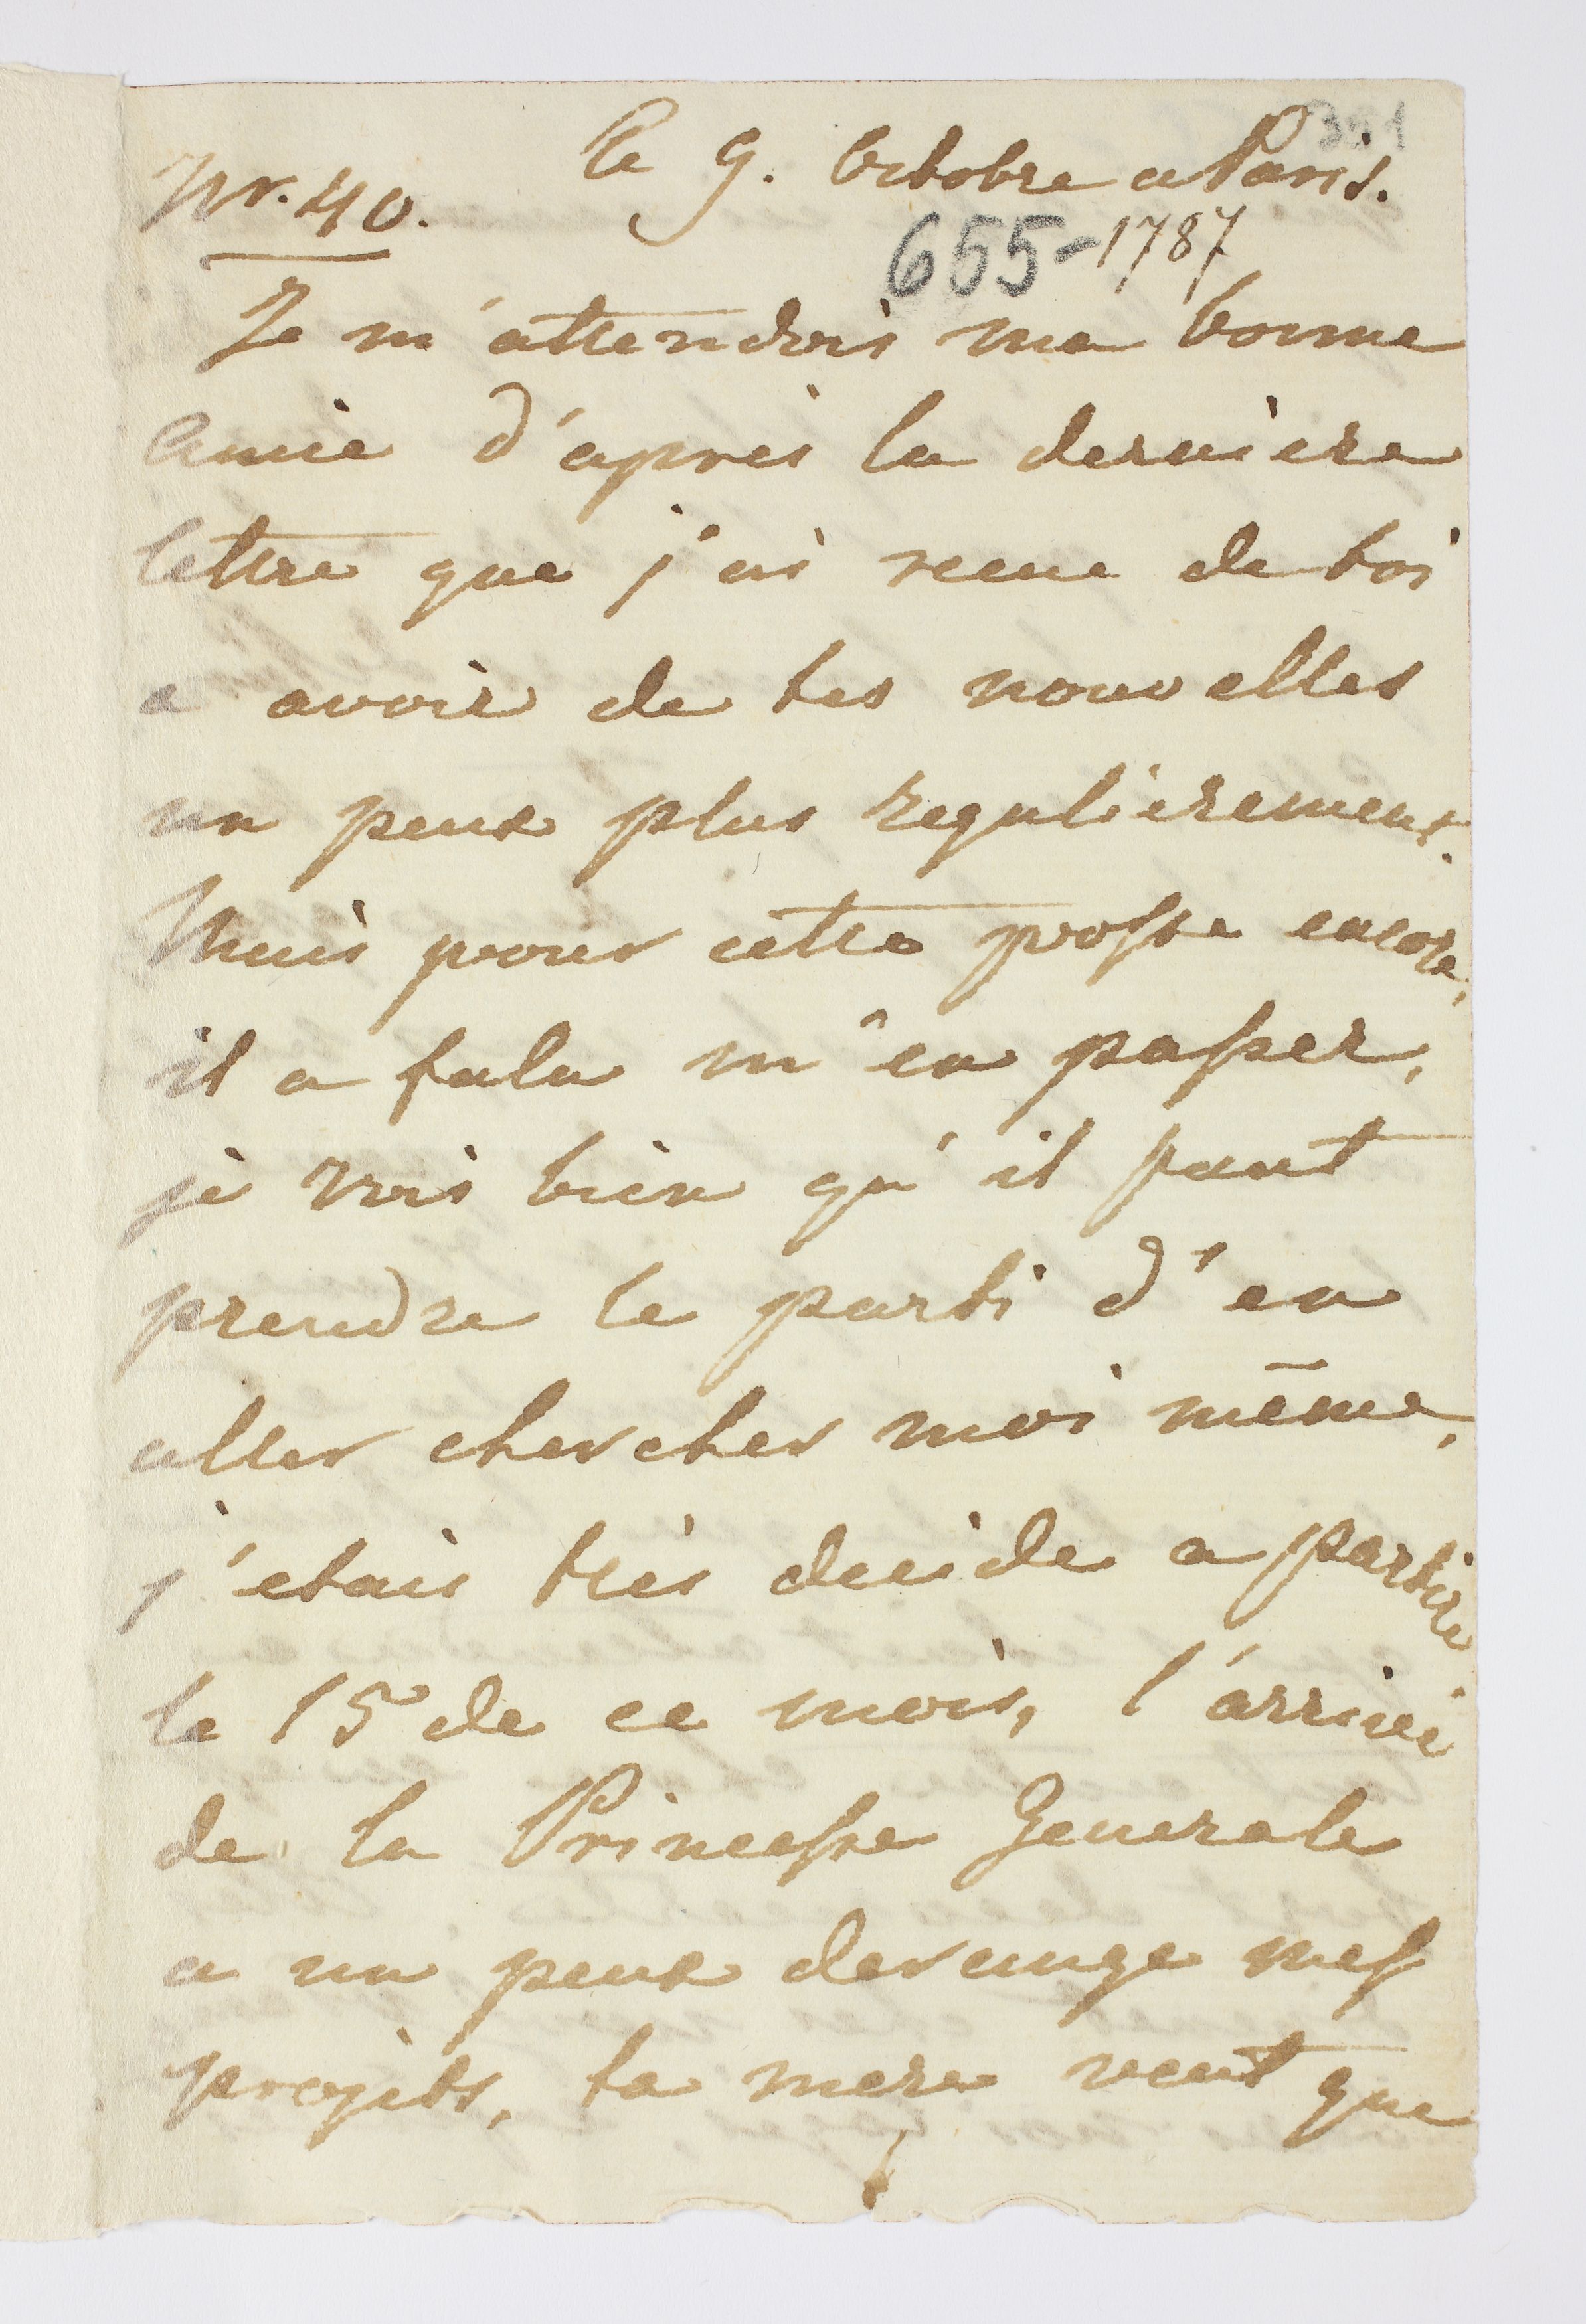 le 9. Octobre a Paris.
Nr. 40.
655-1787
Je m'attendois ma bonne
Amie d'apres la derniere
lettre que j'ai recue de toi
a avoir de tes nouvelles
un peux plus regulierement.
Mais pour cette poste encore,
il a falu m'en passer,
je vois bien qu'il faut
prendre le parti d'en
aller chercher moi même,
j'etais très decide a partire
le 15 de ce mois, l'arrivé
de la Princesse Generale
a un peux derange mes
projets, ta mere veut que